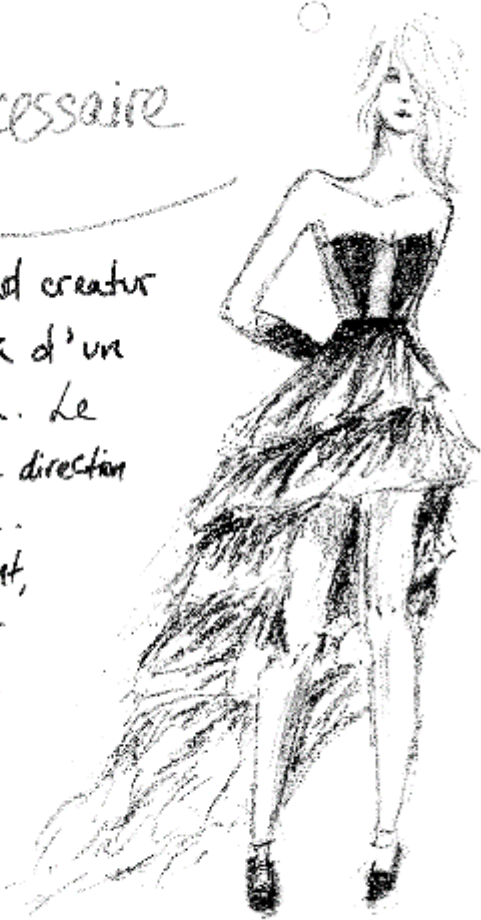 cessaire
d creatur
d'un
. Le
direction
..
t,